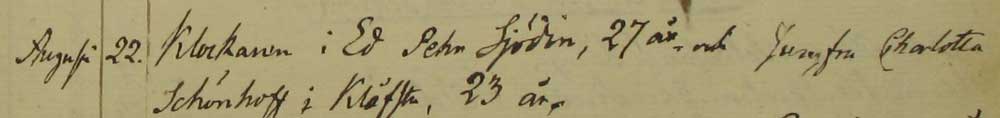 Augusti 22. Klockaren i Ed Pehr Sjödin, 27 år. och Jungfru Charlotta
Schönhoff i Kläfsta, 23 år.